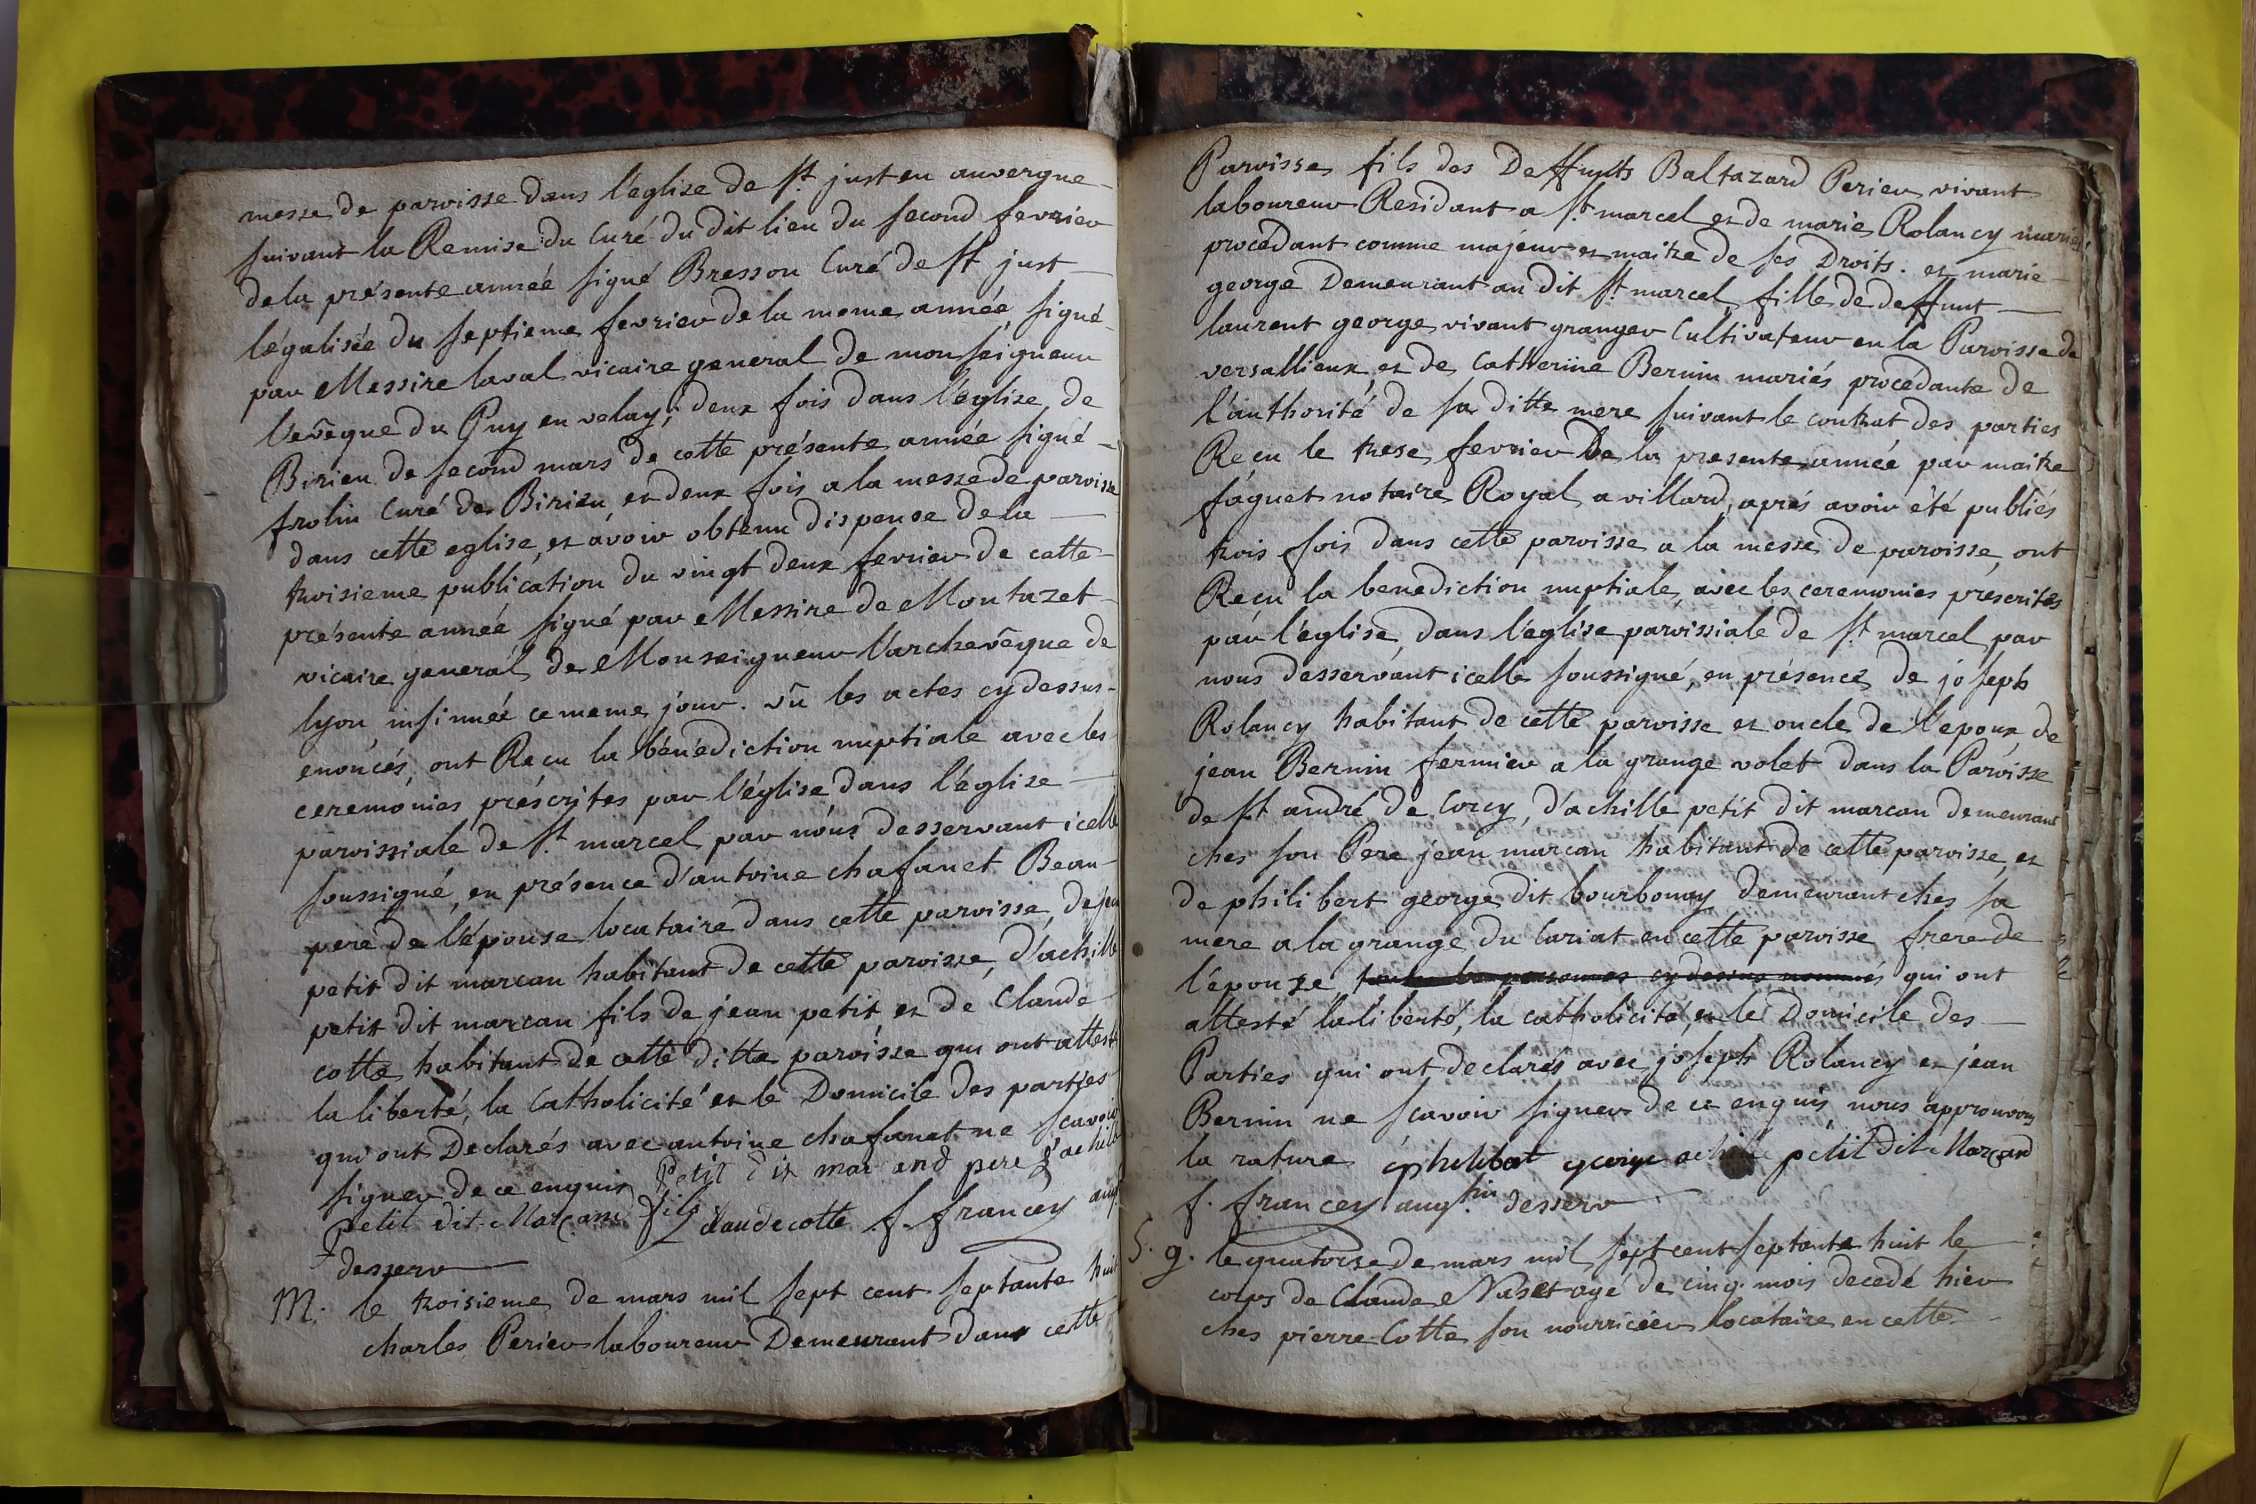 messe de paroisse dans l'église de st. just en auvergne
suivant la Remise du Curé du dit lieu du second fevrier
de la présente année signé Bresson Curé de st just
légalisée du septieme fevrier de la meme année signé
par Messire laval vicaire general de monseigneur
l'evêque du Puy en velay; deux fois dans l'église de
Birieu de second mars de cette présente année signé
frolin Curé de Birieu et deux fois a la messe de paroisse
dans cette eglise, et avoir obtenu dispense de la
troisieme publication du vingt deux fevrier de cette
présente année signé par Messire de Montazet
vicaire general de Monseigneur l'archevêque de
lyon insinuée ce meme jour. vû les actes cy dessus
enoncés, ont Recu la bénédiction nuptiale avec les
ceremonies préscrites par l'église dans l'église
paroissiale de st. marcel par nous desservant icelle
soussigné, en présence d'antoine chafanet Beau-
pere de l'épouse locataire dans cette paroisse, de jean
petit dit marcan habitant de cette paroisse, d'achille
petit dit marcan fils de jean petit et de Claude
cotte habitant de cette ditte paroisse qui ont attesté
la liberté, la Catholicité et le Domicile des parties
qui ont Declarés avec antoine chafanet ne scavoir
signer de ce enquis Petit dit mar and pere d'achile
petit dit Marcand fils claude cotte f. francey aug
desserv
M. le troisieme de mars mil sept cent septante huit
charles Perier laboureur Demeurant dans cette
Paroisse, fils des Deffunts Baltazard Perier vivant
laboureur Residant a st marcel et de marie Rolancy mariés
procedant comme majeur et maitre de ses Droits. et marie
george Demeurant au dit st. marcel, fille de deffunt
laurent george vivant granger Cultivateur en la Paroisse de
versallieux et de Catherine Bernin mariés procédante de
l'authorité de sa ditte mere suivant le contrat des parties
Recu le trese fevrier De la presente année par maitre
fáguet notaire Royal a villard, aprés avoir été publiés
trois fois dans cette paroisse a la messe de paroisse, ont
Recu la benediction nuptiale, avec les ceremonies préscrites
par l'église, dans l'église paroissiale de st. marcel par
nous desservant icelle soussigné, en présence de joseph
Rolancy habitant de cette paroisse et oncle de l'epoux, de
jean Bernin fermier a la grange volet dans la Paroisse
de st andré de Corcy, d'achille petit dit marcan demeurant
ches son Pere jean marcan habitant de cette paroisse, et
de philibert george dit bourbonay demeurant ches sa
mere a la grange du Curiat en cette paroisse frere de
l'épouse personnes cy dessus nommés qui ont
attesté la liberté, la catholicité, et le Domicile des
Parties qui ont declarés avec joseph Rolancy et jean
Bernin ne scavoir signer de ce enquis nous approuvons
la rature philibat george achille petit dit Marcand
f. francey aug.tin desserv
S. g. le quatorze de mars mil sept cent septante huit le
corps de Claude Naset agé de cinq mois decedé hier
ches pierre Cotte son nourricier locataire en cette